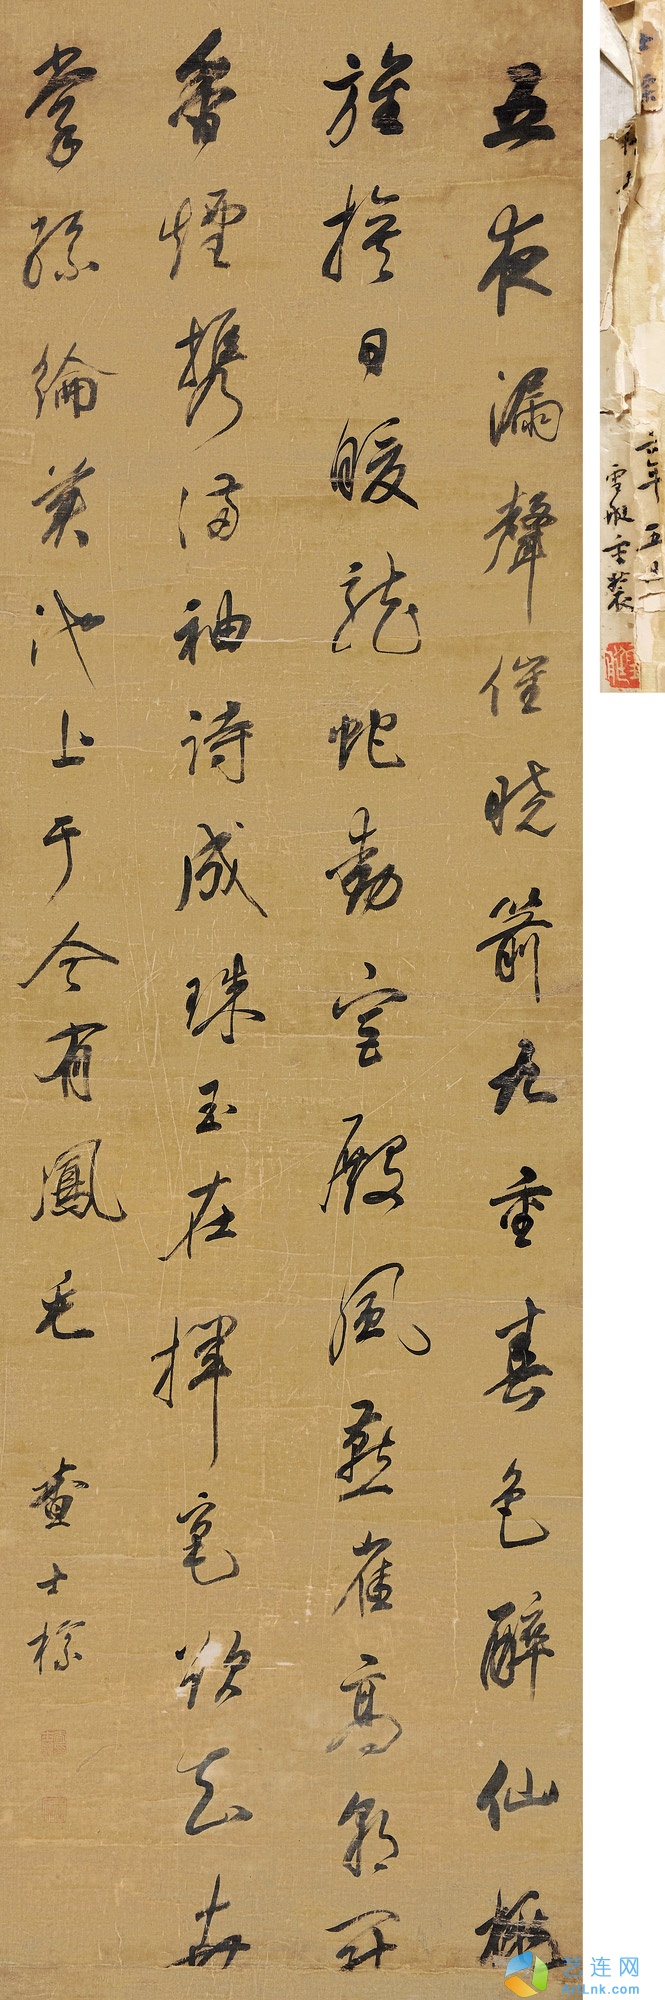 五夜漏聲催曉箭九重春色醉仙桃
旌旗日暖龍蛇動宮殿風燕雀高朝罷
香煙携滿袖詩成珠玉在揮毫欲知世
掌絲綸美池上于今有鳳毛
查士標
年五
雪重裝
艺连网
ArtLnk.com